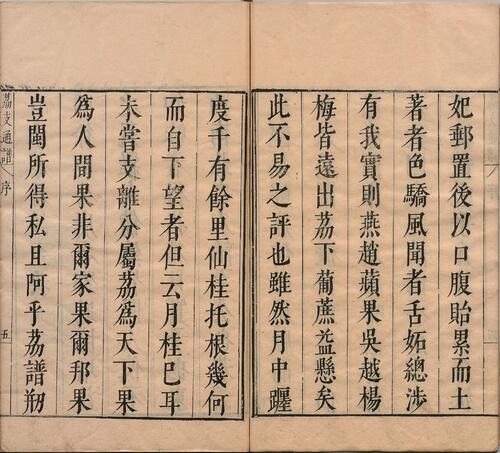 妃郵置後以口腹貽累而土
著者色驕風聞者舌妬總涉
有我實則燕趙蘋果吳越楊
梅皆遠出荔下葡蔗益懸矣
此不易之評也雖然月中躔
度千有餘里仙桂托根幾何
而自下望者但云月桂已耳
未嘗支離分屬荔為天下果
為人間果非爾家果爾邦果
豈閩所得私且阿乎荔譜刱
荔支通譜 序 五